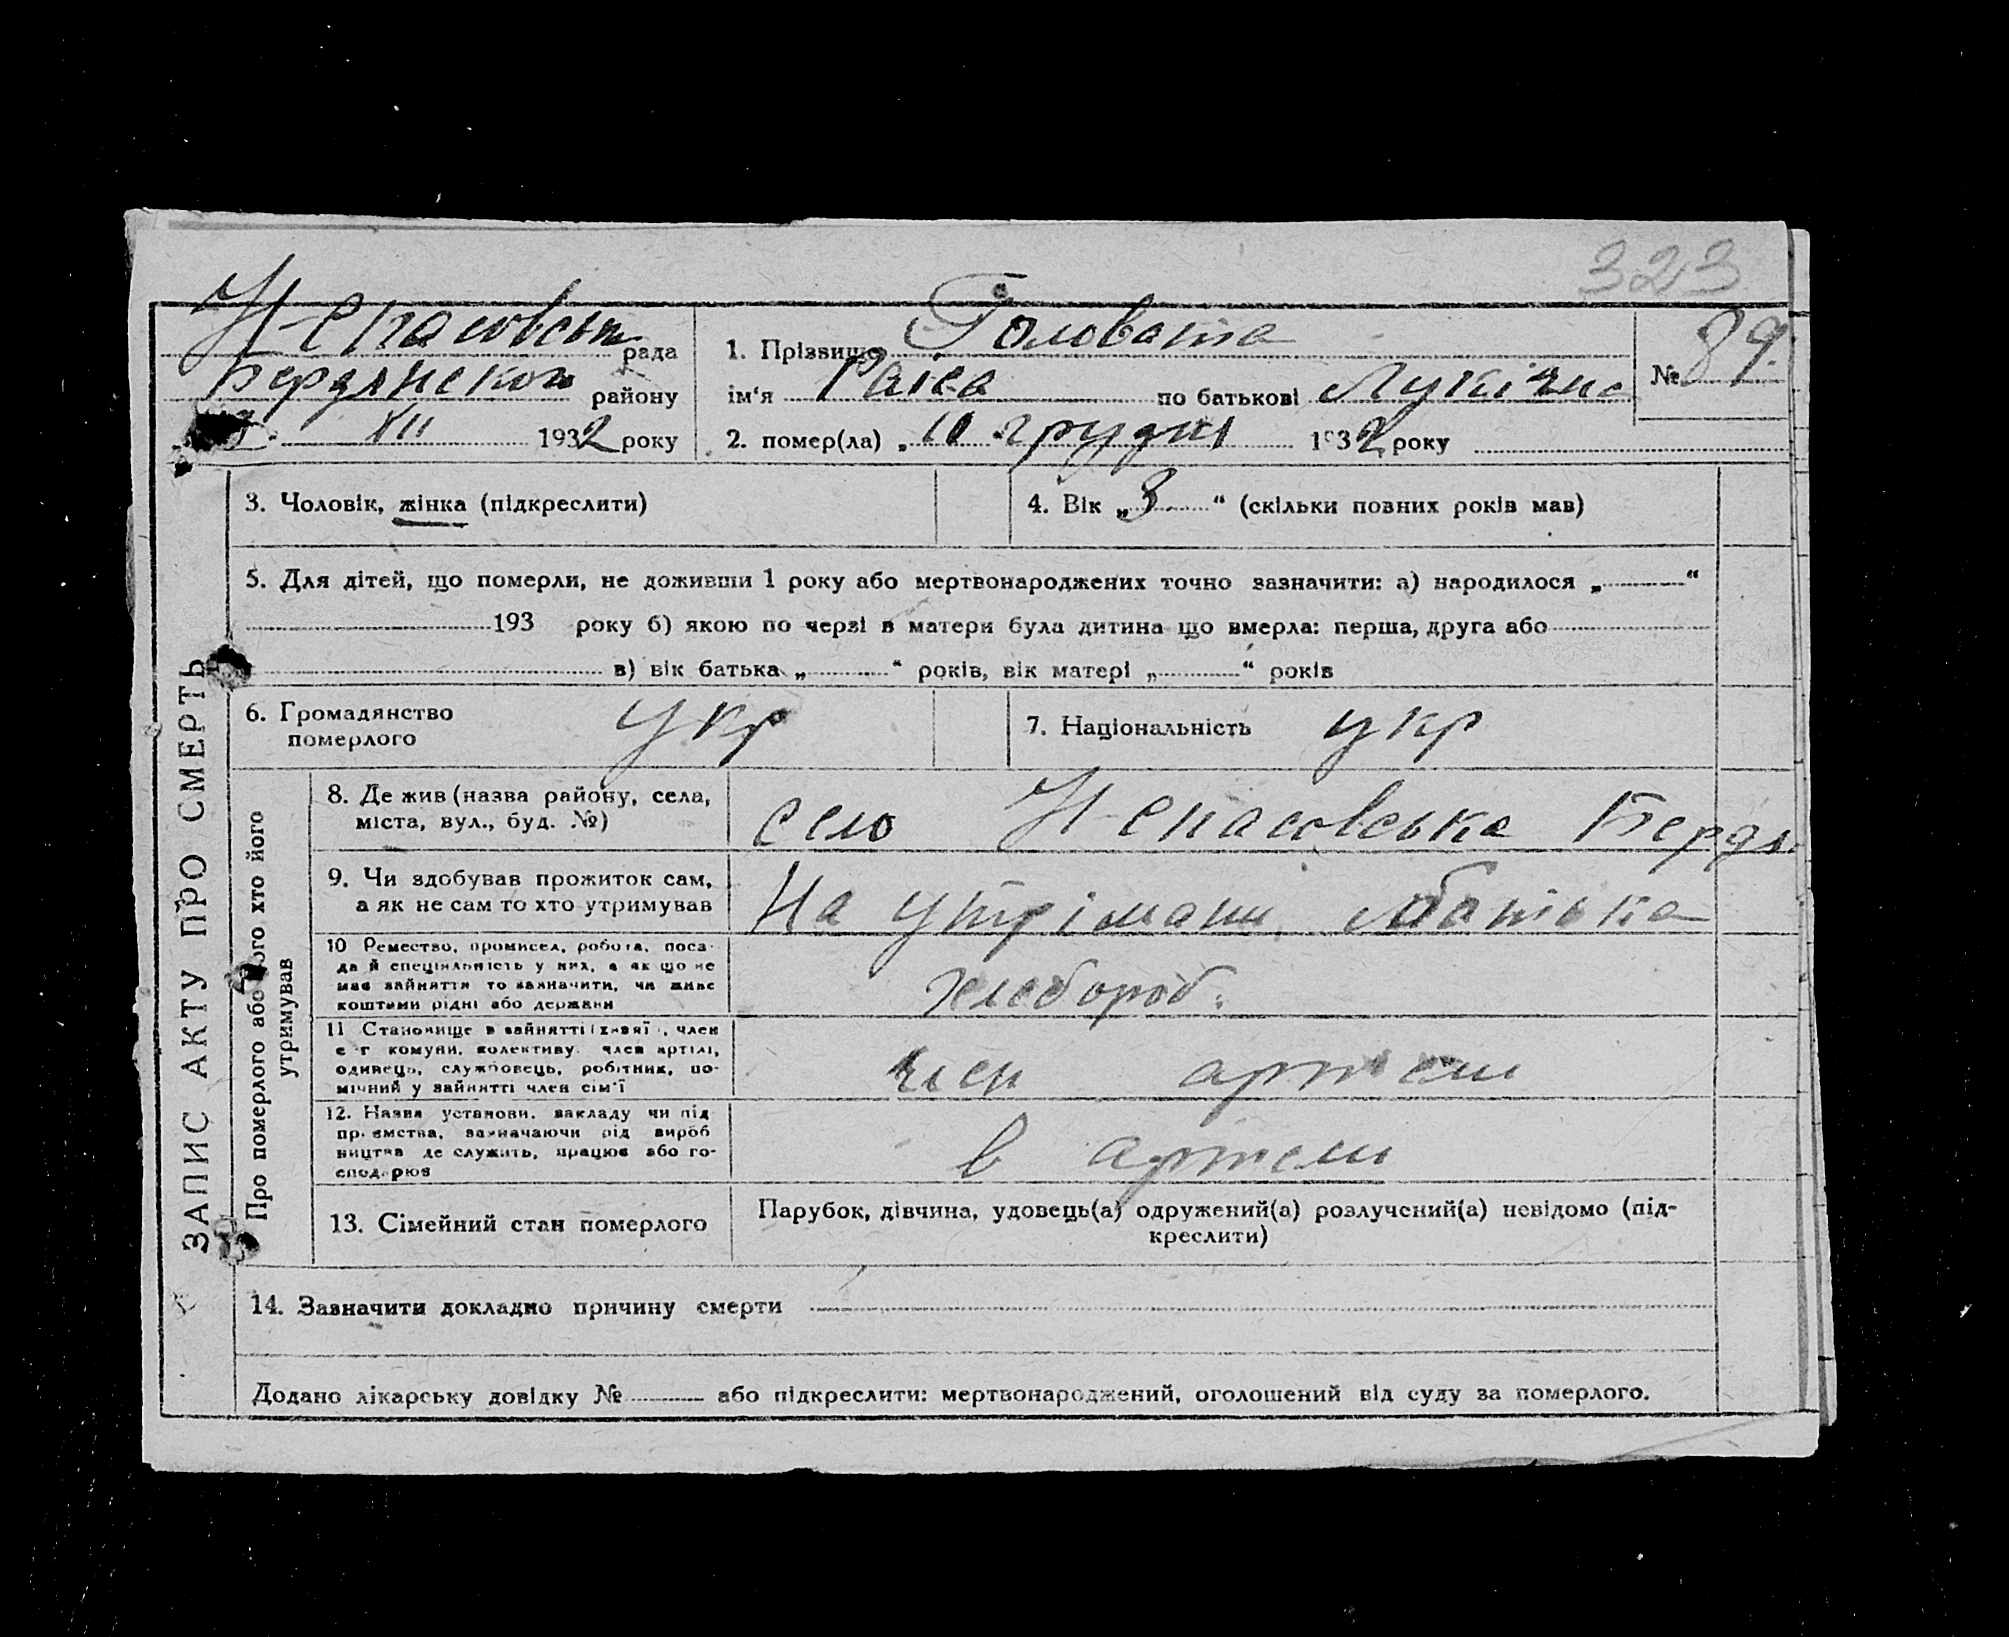 323
Н-Спасовськ рада
Бердянском району
XII 1932 року
1. Прізвище Головата
ім'я Раіса по батькові Лукічна
2. помер(ла) „10 грудні 1932 року
№ 89.
ЗАПИС АКТУ ПРО СМЕРТЬ
3. Чоловік, жінка (підкреслити)
4. Вік „3“ (скільки повних років мав)
5. Для дітей, що померли, не доживши 1 року або мертвонароджених точно зазначити: а) народилося „ “
193 року б) якою по черзі в матери була дитина що вмерла: перша, друга або
в) вік батька „ “ років, вік матері „ “ років
6. Громадянство
померлого
укр
7. Національність укр
Про померлого або того хто його
утримував
8. Де жив (назва району, села,
міста, вул., буд. №)
село Н-Спасовська Бердя.
9. Чи здобував прожиток сам,
а як не сам то хто утримував
На утрімани батька
10 Ремество, промисел, робота, поса-
да й спеціяльність у них, а як що не
має зайняття то зазначити, чи живе
коштами рідні або держави
хлебороб.
11 Становище в зайнятті (хазяї , член
с-г комуни, колективу, член артілі,
одинець, службовець, робітник, по-
мічний у зайнятті член сім'ї
член артели
12. Назва установи, закладу чи під
приємства, зазначаючи рід вироб
ництва де служить, працює або го-
сподарює
в артели
13. Сімейний стан померлого
Парубок, дівчина, удовець(а) одружений(а) розлучений(а) невідомо (під-
креслити)
14. Зазначити докладно причину смерти
Додано лікарську довідку № або підкреслити: мертвонароджений, оголошений від суду за померлого.